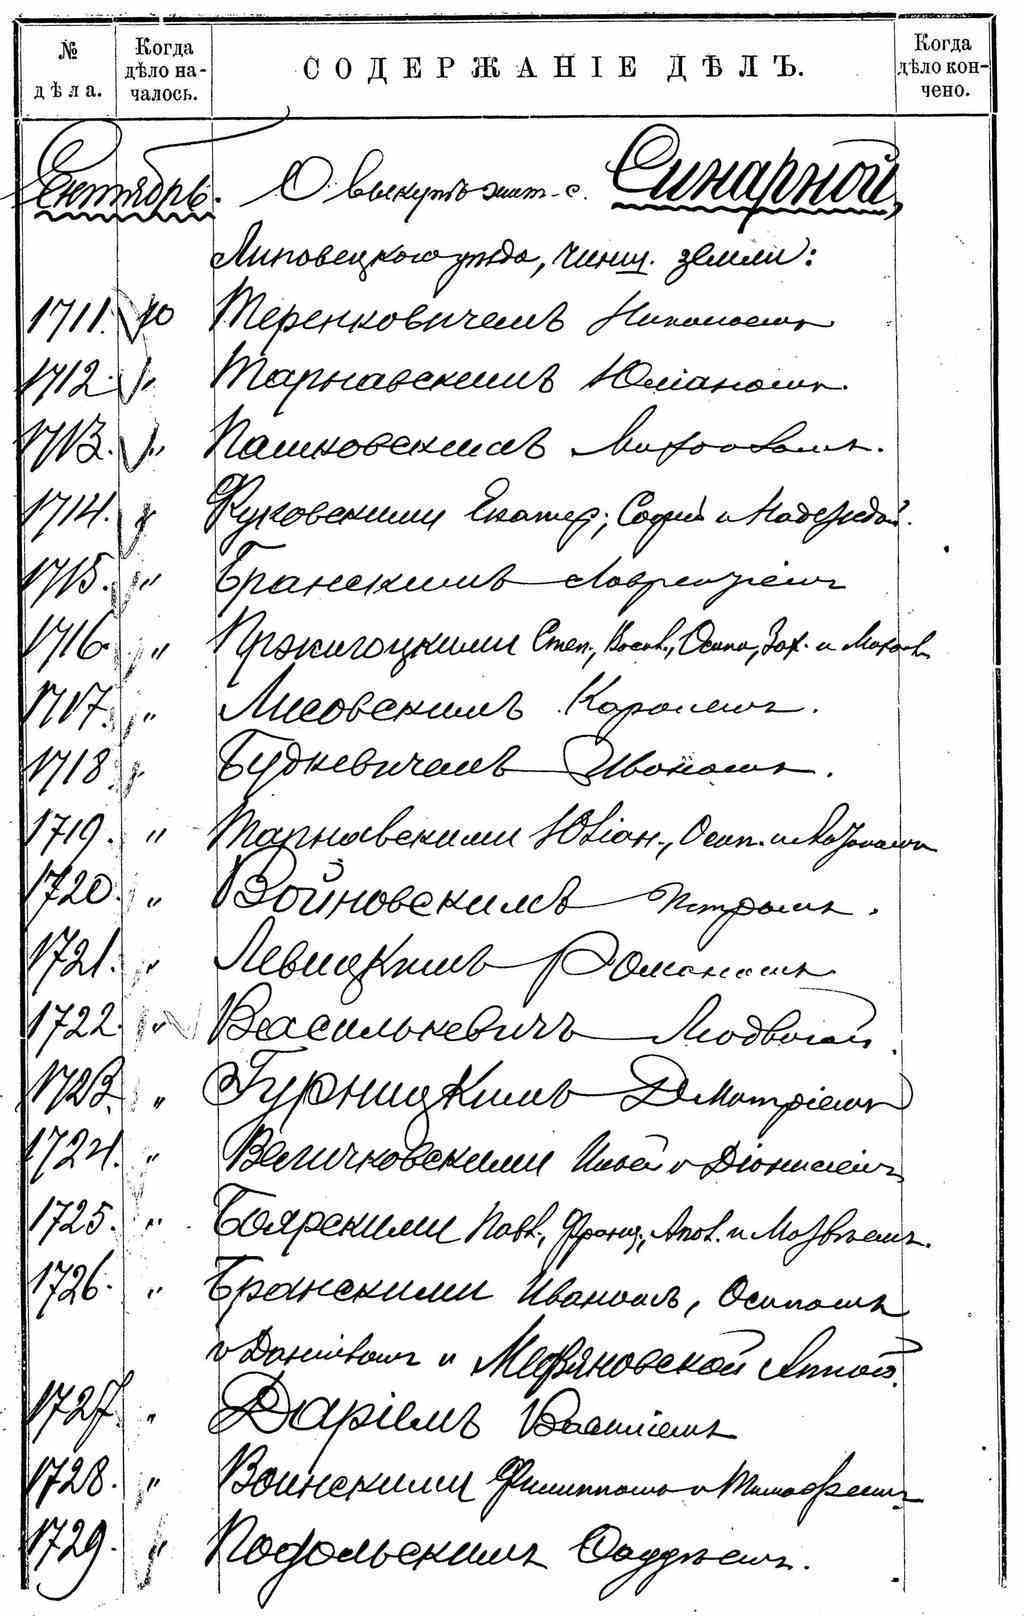 № дѣла.
Когда дѣло началось.
СОДЕРЖАНІЕ ДѢЛЪ.
Когда дѣло кончено.
Сентябрь. О выкупѣ жит. с. Синарной,
Липовецкого уѣзда, чинш. земли:
1711. 10 Теренковичемъ Николаемъ
1712. " Тарнавскимъ Юліаномъ.
1713. " Пашковскимъ
1714. " Жуковскими Екатер., Софіей и Надеждой.
1715. " Бранскимъ Лаврентіемъ
1716. " Пржигоцкими Степ., Васил., Осипо, Зах. и
1717. " Лисовскимъ Каролемъ.
1718. " Будкевичемъ Иваномъ.
1719. " Тарнавскими Юліан., Осип. и
1720. " Войновскимъ Петромъ.
1721. " Левицкимъ Романомъ
1722. " Василькевичъ Людвигой.
1723. " Гурницкимъ Дмитріемъ
1724. " Величковскими Ильей и Діонисіемъ
1725. " Боярскими Павл., Франц., Апол. и Матвѣемъ.
1726. " Бранскими Иваномъ, Осипомъ
и Даниломъ и Анной.
1727. " Даріемъ Василіемъ
1728. " Воинскими Филиппомъ и Тимофеемъ
1729. " Подольскимъ Фаддѣемъ.